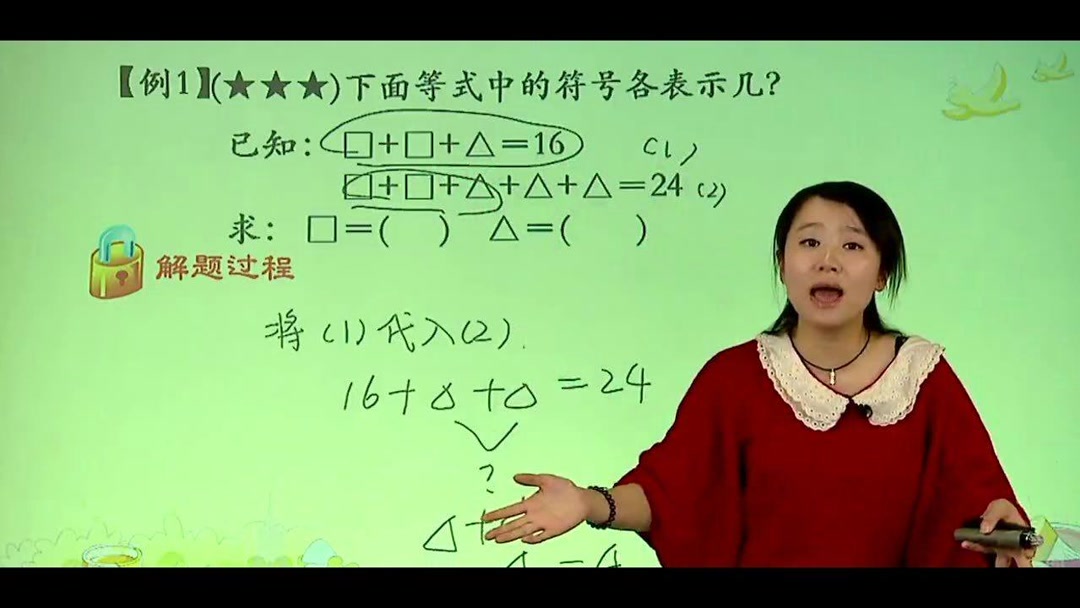 【例1】(★★★)下面等式中的符号各表示几?
已知: □+□+△=16 (1)
□+□+△+△+△=24 (2)
求: □=( ) △=( )
解题过程
将(1)代入(2).
16+△+△=24
?
△+
△=4